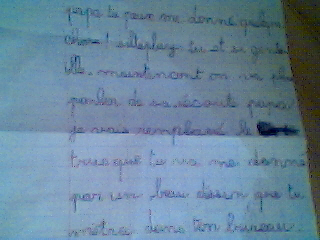 papa tu peux me donné quelque
chose! silteplay tu et si gentie
ille. maintenant on va plu
parler de sa écoute papa
je vais remplacé le
truc que tu va me donné
par un beau dessin que tu
métras dans ton bureau.